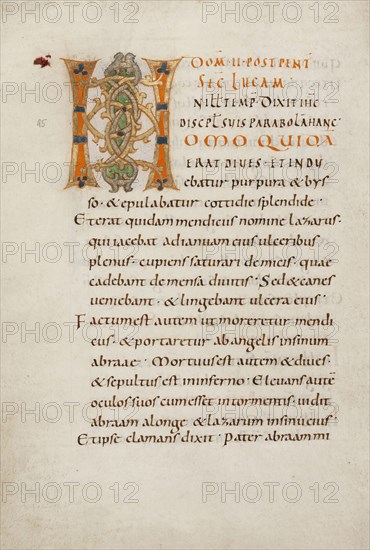 DOM II POST PENT
SEC LUCAM
N ILL TEMP DIXIT IHC
DISCPLS SUIS PARABOLA HANC
HOMO QUIDA
ERAT DIVES · ET INDU
ebatur purpura & bys
so · & epulabatur cottidie splendide ·
Et erat quidam mendicus nomine lazarus ·
qui iacebat ad ianuam eius ulceribus
plenus · cupiens saturari de micis · quae
cadebant de mensa divitis · Sed & canes
veniebant · & lingebant ulcera eius ·
Factum est autem ut moreretur mendi
cus · & portaretur ab angelis in sinum
abraae · Mortuus est autem & dives ·
& sepultus est in inferno · Elevans autē
oculos suos cum esset in tormentis · vidit
abraam a longe · & lazarum in sinu eius ·
Et ipse clamans dixit · Pater abraam mi
PHOTO 12